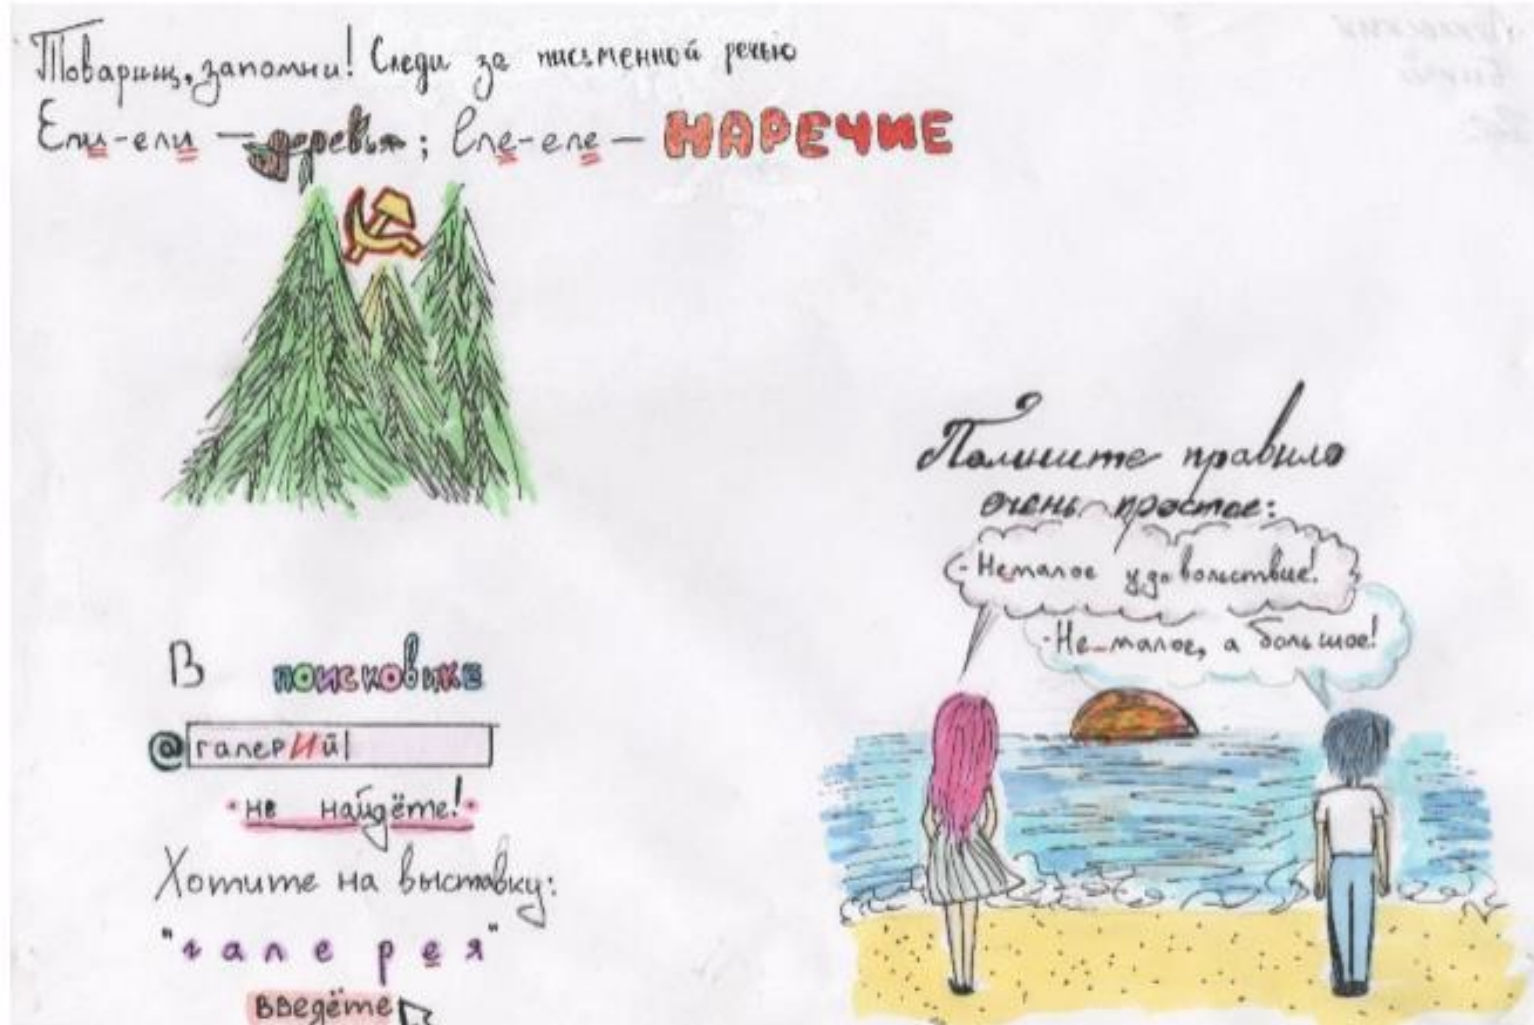 Товарищ, запомни! Следи за письменной речью
Ели-ели — деревья; Еле-еле — НАРЕЧИЕ
Помните правило
очень простое:
- Немалое удовольствие!
- Не малое, а большое!
В поисковике
@ галерИй|
не найдёте!
Хотите на выставку:
"галерея"
введёте